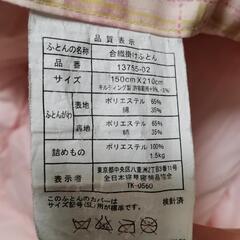 品質表示
ふとんの名称 合繊掛けふとん
品番 13755-02
サイズ 150cm×210cm
キルティング製 許容範囲+9%、-3%
ふとんがわ 表地 ポリエステル 65%
綿 35%
裏地 ポリエステル 65%
綿 35%
詰めもの ポリエステル 100%
1.5kg
表示者 東京都中央区八重洲2丁目3番11号
全日本寝具寝装品協会
TK-0560
このふとんのカバーは
サイズ記号(SL)用が標準です。
検針済